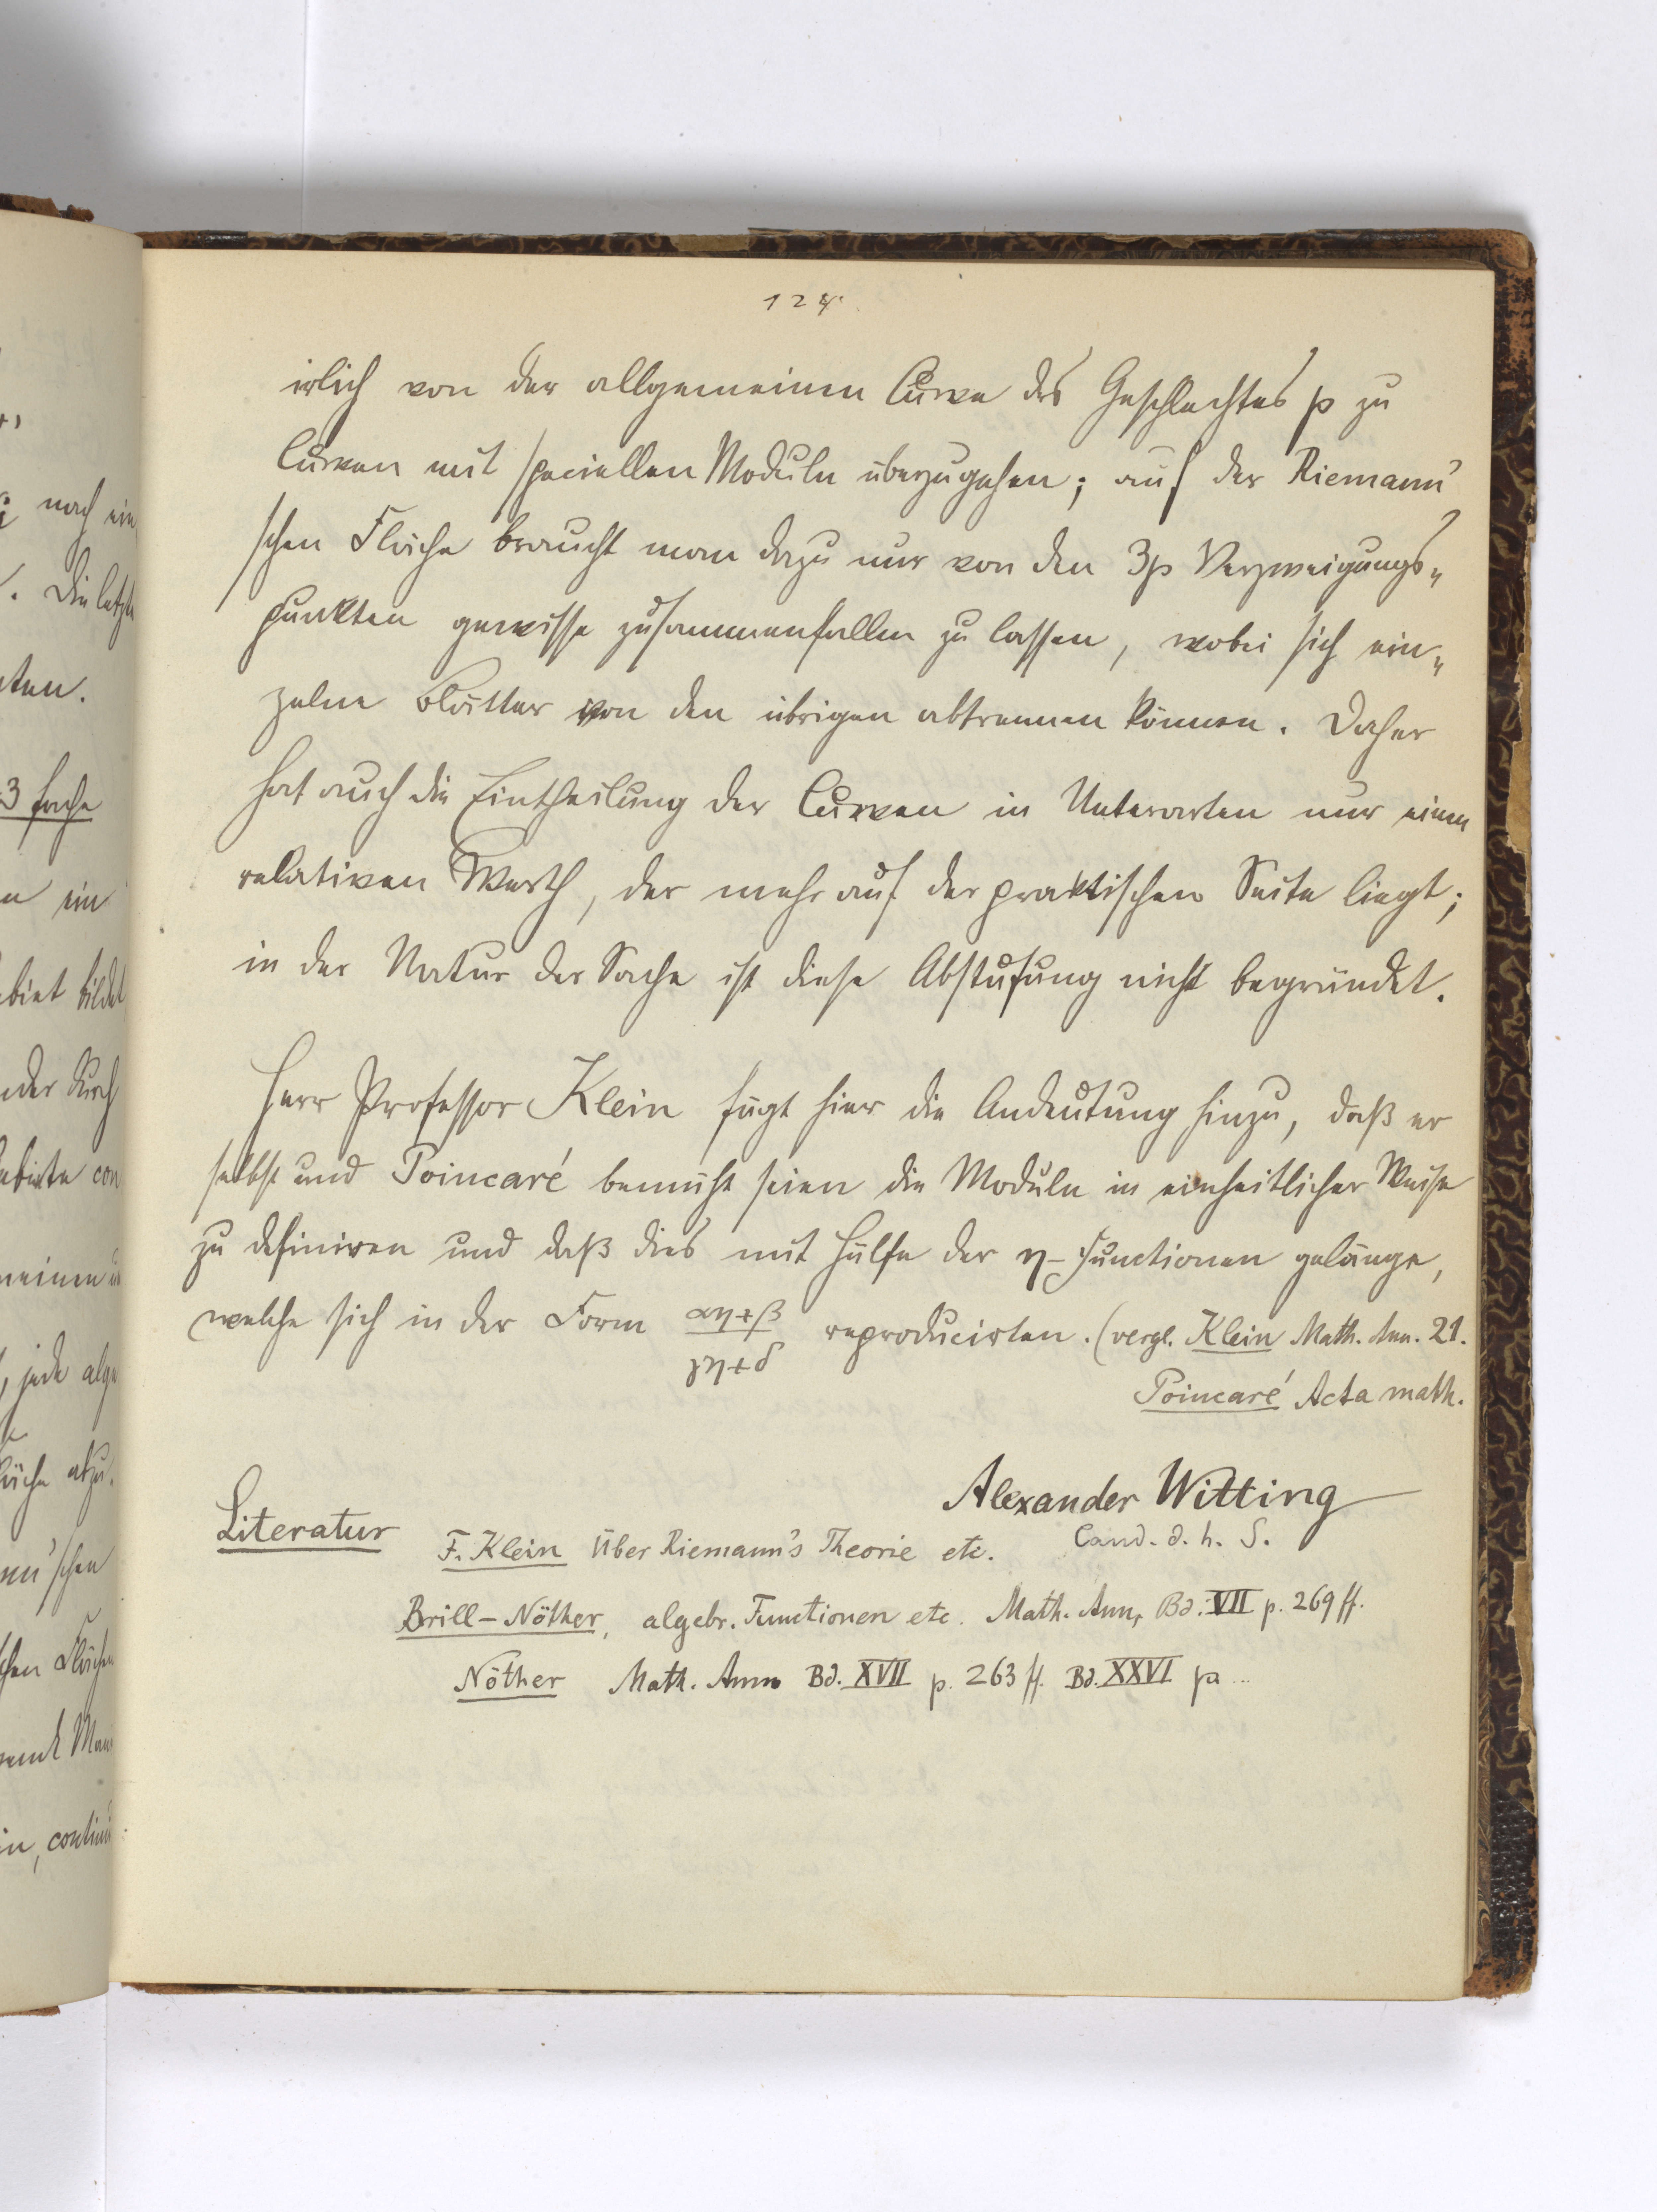 124.
irlich von der allgemeinen Curve des Geschlechtes p zu
Curven mit speciellen Moduln überzugehen; auf der Riemann'
schen Fläche braucht man dazu nur von den 3p Verzweigungs„
punkten gewisse zusammenfallen zu lassen, wobei sich ein„
zelne Blätter von den übrigen abtrennen können. Daher
hat auch die Eintheilung der Curven in Unterarten nur einen
relativen Werth, der mehr auf der praktischen Seite liegt;
in der Natur der Sache ist diese Abstufung nicht begründet.
Herr Professor Klein fügt hier die Andeutung hinzu, daß er
selbst und Poincaré bemüht seien die Moduln in einheitlicher Weise
zu definiren und daß dies mit Hülfe der η-Functionen gelänge,
welche sich in der Form αη+β / γη+δ reproducirten. (vergl. Klein Math. Ann. 21.
Poincaré Acta math.
Alexander Witting
Cand. d. h. S.
Literatur
F. Klein Über Riemann's Theorie etc.
Brill-Nöther, algebr. Functionen etc. Math. Ann, Bd. VII p. 269 ff.
Nöther Math. Ann. Bd. XVII p. 263 ff. Bd. XXVI p ...
nach ein
Die letzte
3 fache
ein
bildet
durch
con
jede alge
abzu.
schen
Flächen
continu